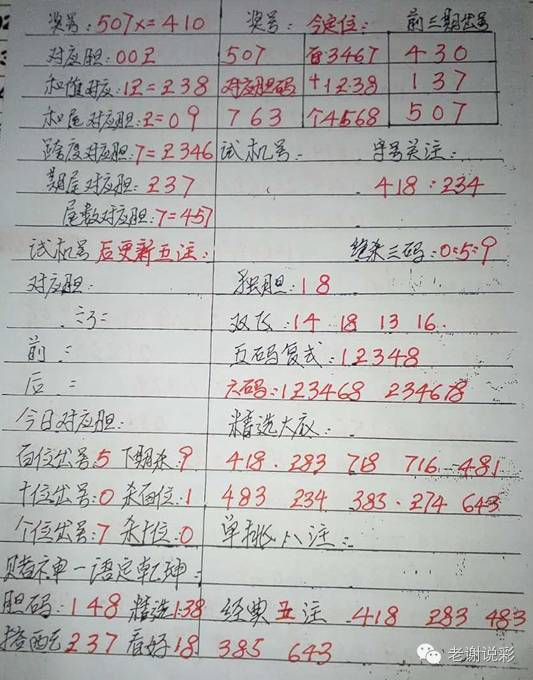 奖号:507x=410 奖号: 今定位: 前三期出号
对应胆:00Z 507 百3467 430
和值对应:12=238 对应胆码 十1238 137
和尾对应胆:2=09 763 个4568 507
跨度对应胆:7=2346 试机号: 字号关注:
期尾对应胆:237 418:234
尾数对应胆:7=457
试机号后更新五注: 绝杀三码:0:5:9
对应胆: 独胆:18
双飞:14 18 13 16
前 = 五码复式:12348
后 = 六码:123468 234678
今日对应胆: 精选大底:
百位出号:5 下期杀:9 418.283 718 716 481
十位出号:0 杀百位:1 483 234 383.274 643
个位出号:7 杀十位:0 单挑八注:
赌神一语定乾坤:
胆码:148 精选138 经典五注 418 283 483
搭配237 看好18 385 643
老谢说彩